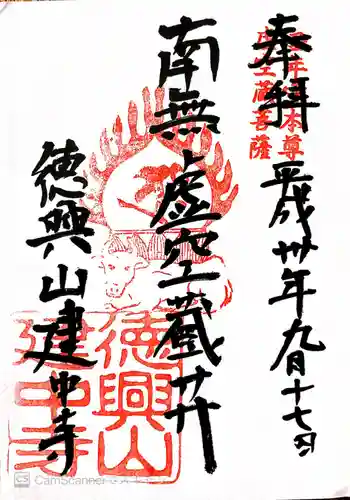 奉拝
平成卅年九月十七日
本尊
空蔵菩薩
南無虚空蔵菩薩
徳興山建中寺
徳興山
建中寺
CamScanner